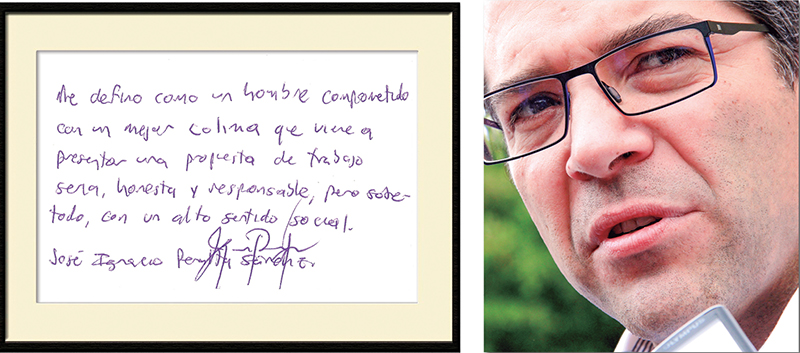 Me defino como un hombre comprometido
con un mejor Colima que viene a
presentar una propuesta de trabajo
seria, honesta y responsable, pero sobre-
todo, con un alto sentido social.
José Ignacio Peralta Sánchez.
OLYMPUS